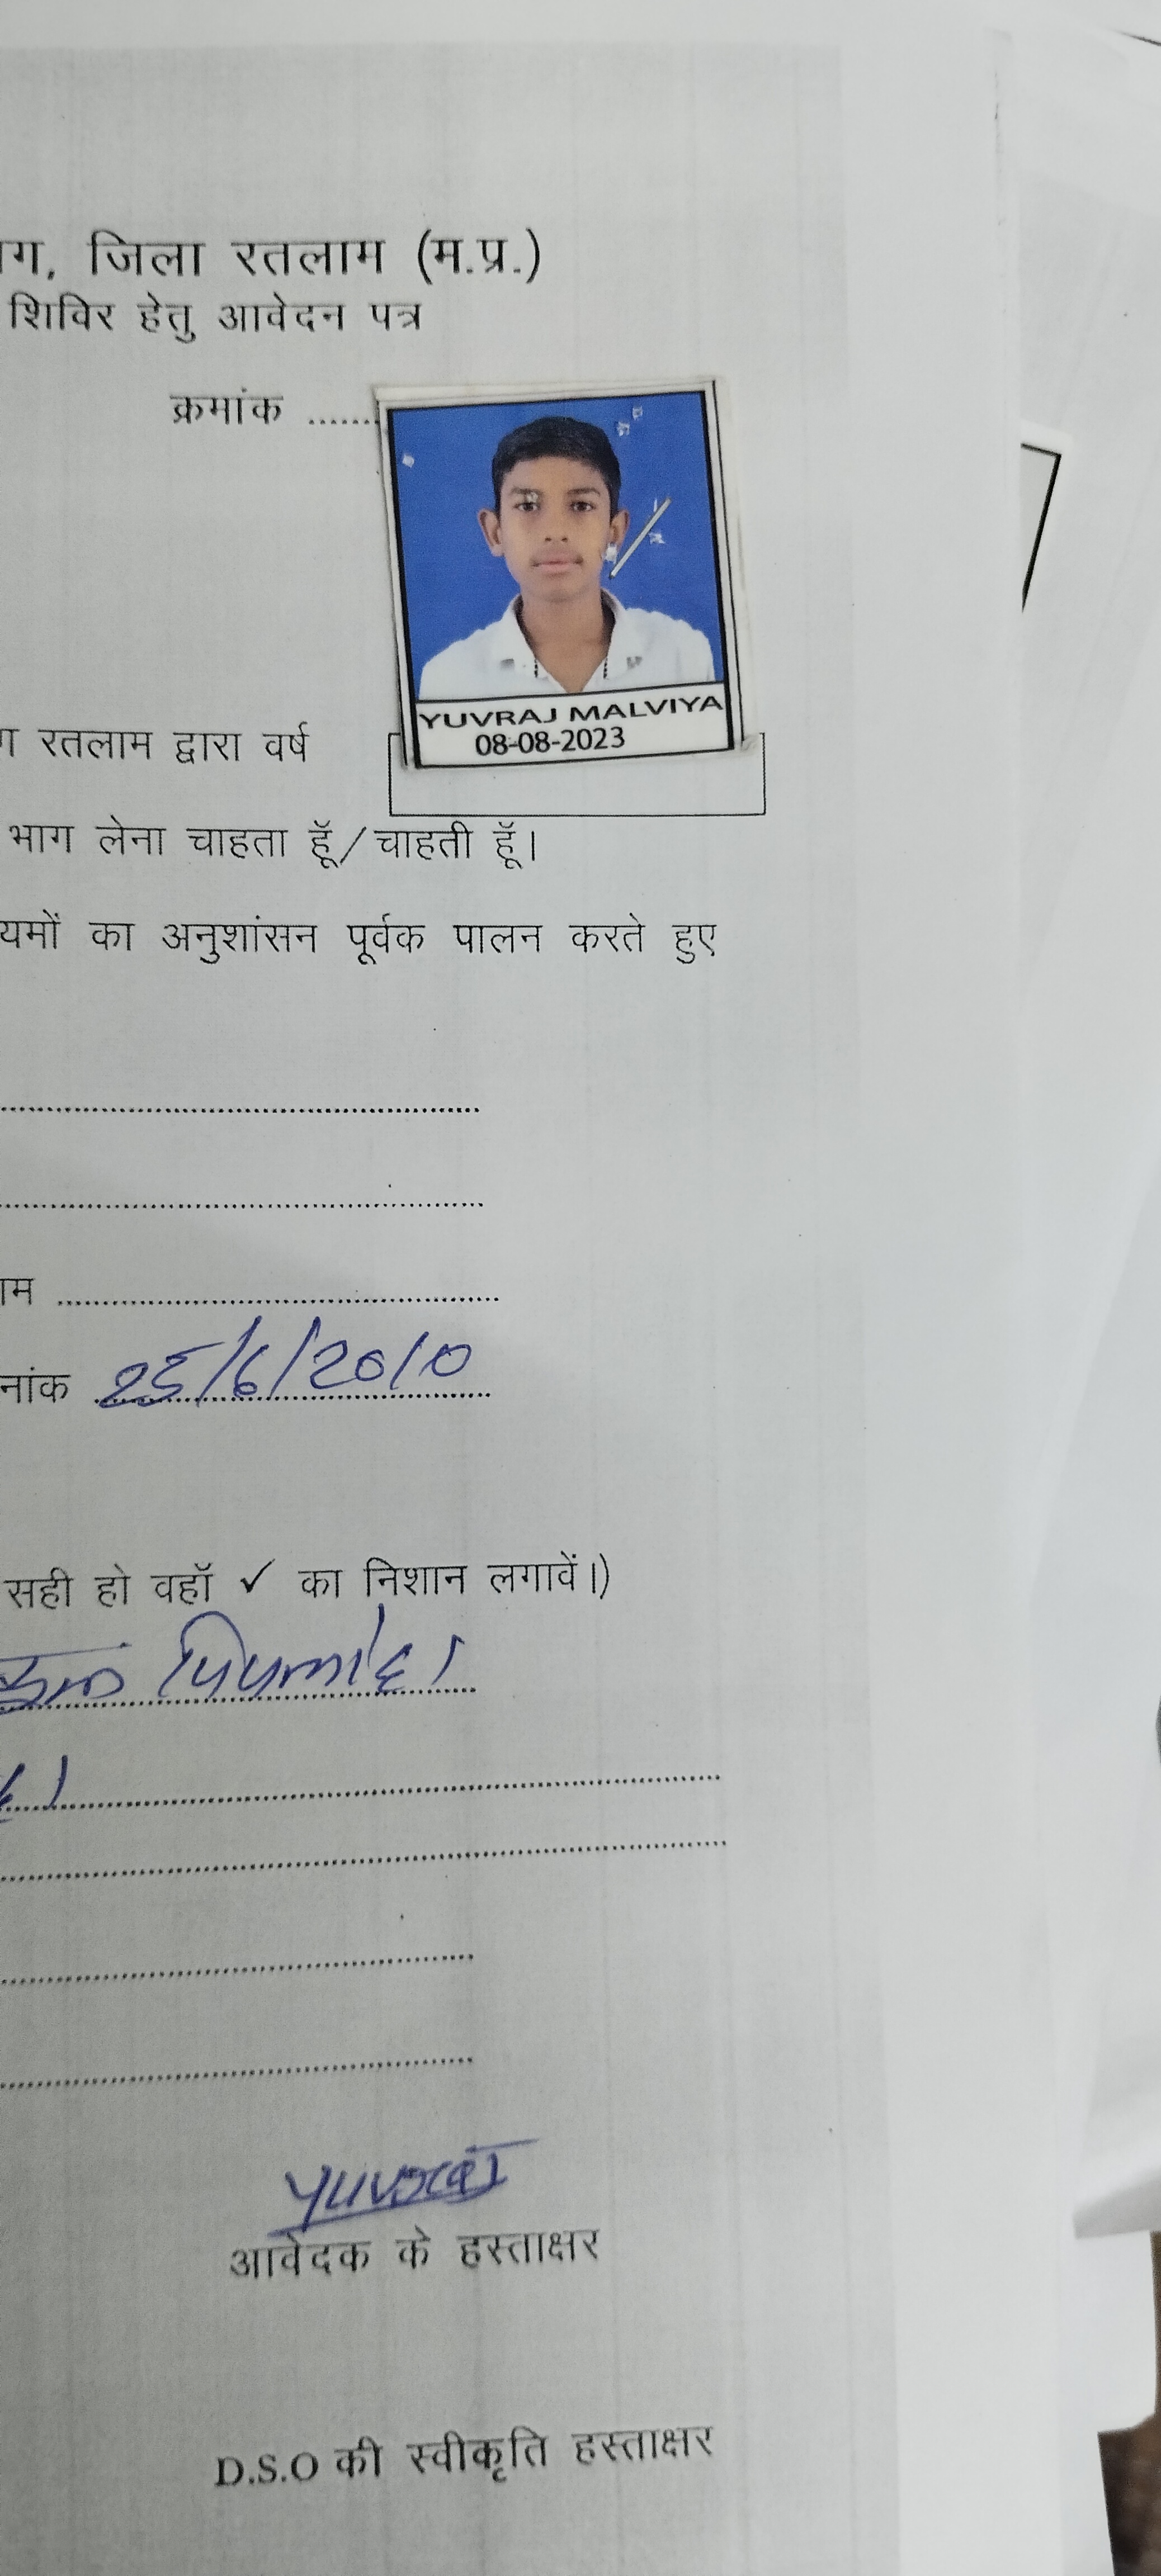 ाग, जिला रतलाम (म.प्र.)
शिविर हेतु आवेदन पत्र
क्रमांक .......
YUVRAJ MALVIYA
08-08-2023
ग रतलाम द्वारा वर्ष
भाग लेना चाहता हूॅ/चाहती हूॅ।
यमों का अनुशांसन पूर्वक पालन करते हुए
ाम ..........
नांक 25/6/2010
सही हो वहॉ ✓ का निशान लगावें।)
yuvraj
आवेदक के हस्ताक्षर
D.S.O की स्वीकृति हस्ताक्षर